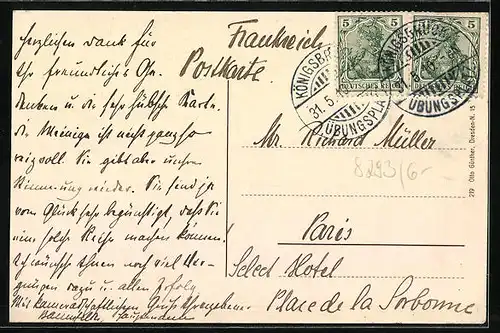 Herzlichen Dank für
Ihr freundliches Ge-
denken u. die sehr hübsche Karte.
Die Meinige ist nicht ganz so
reizvoll. Sie gibt aber unsere
Stimmung wieder. Sie sind ja
vom Glück sehr begünstigt, daß Sie
eine solche Reise machen können!
Ich wünsche Ihnen noch viel Ver-
gnügen dazu u. allen Erfolg
Mit kameradschaftlichem Gruß Ihr ergebener
Frankreich
Postkarte.
5 5
DEUTSCHES REICH
5 5
KÖNIGSBRÜCK
31.5.
ÜBUNGSPLATZ
KÖNIGSBRÜCK
31.5.
ÜBUNGSPLATZ
Mr. Richard Müller
8293/6-
Paris
Select Hotel
Place de la Sorbonne
219 Otto Günther, Dresden-N. 15